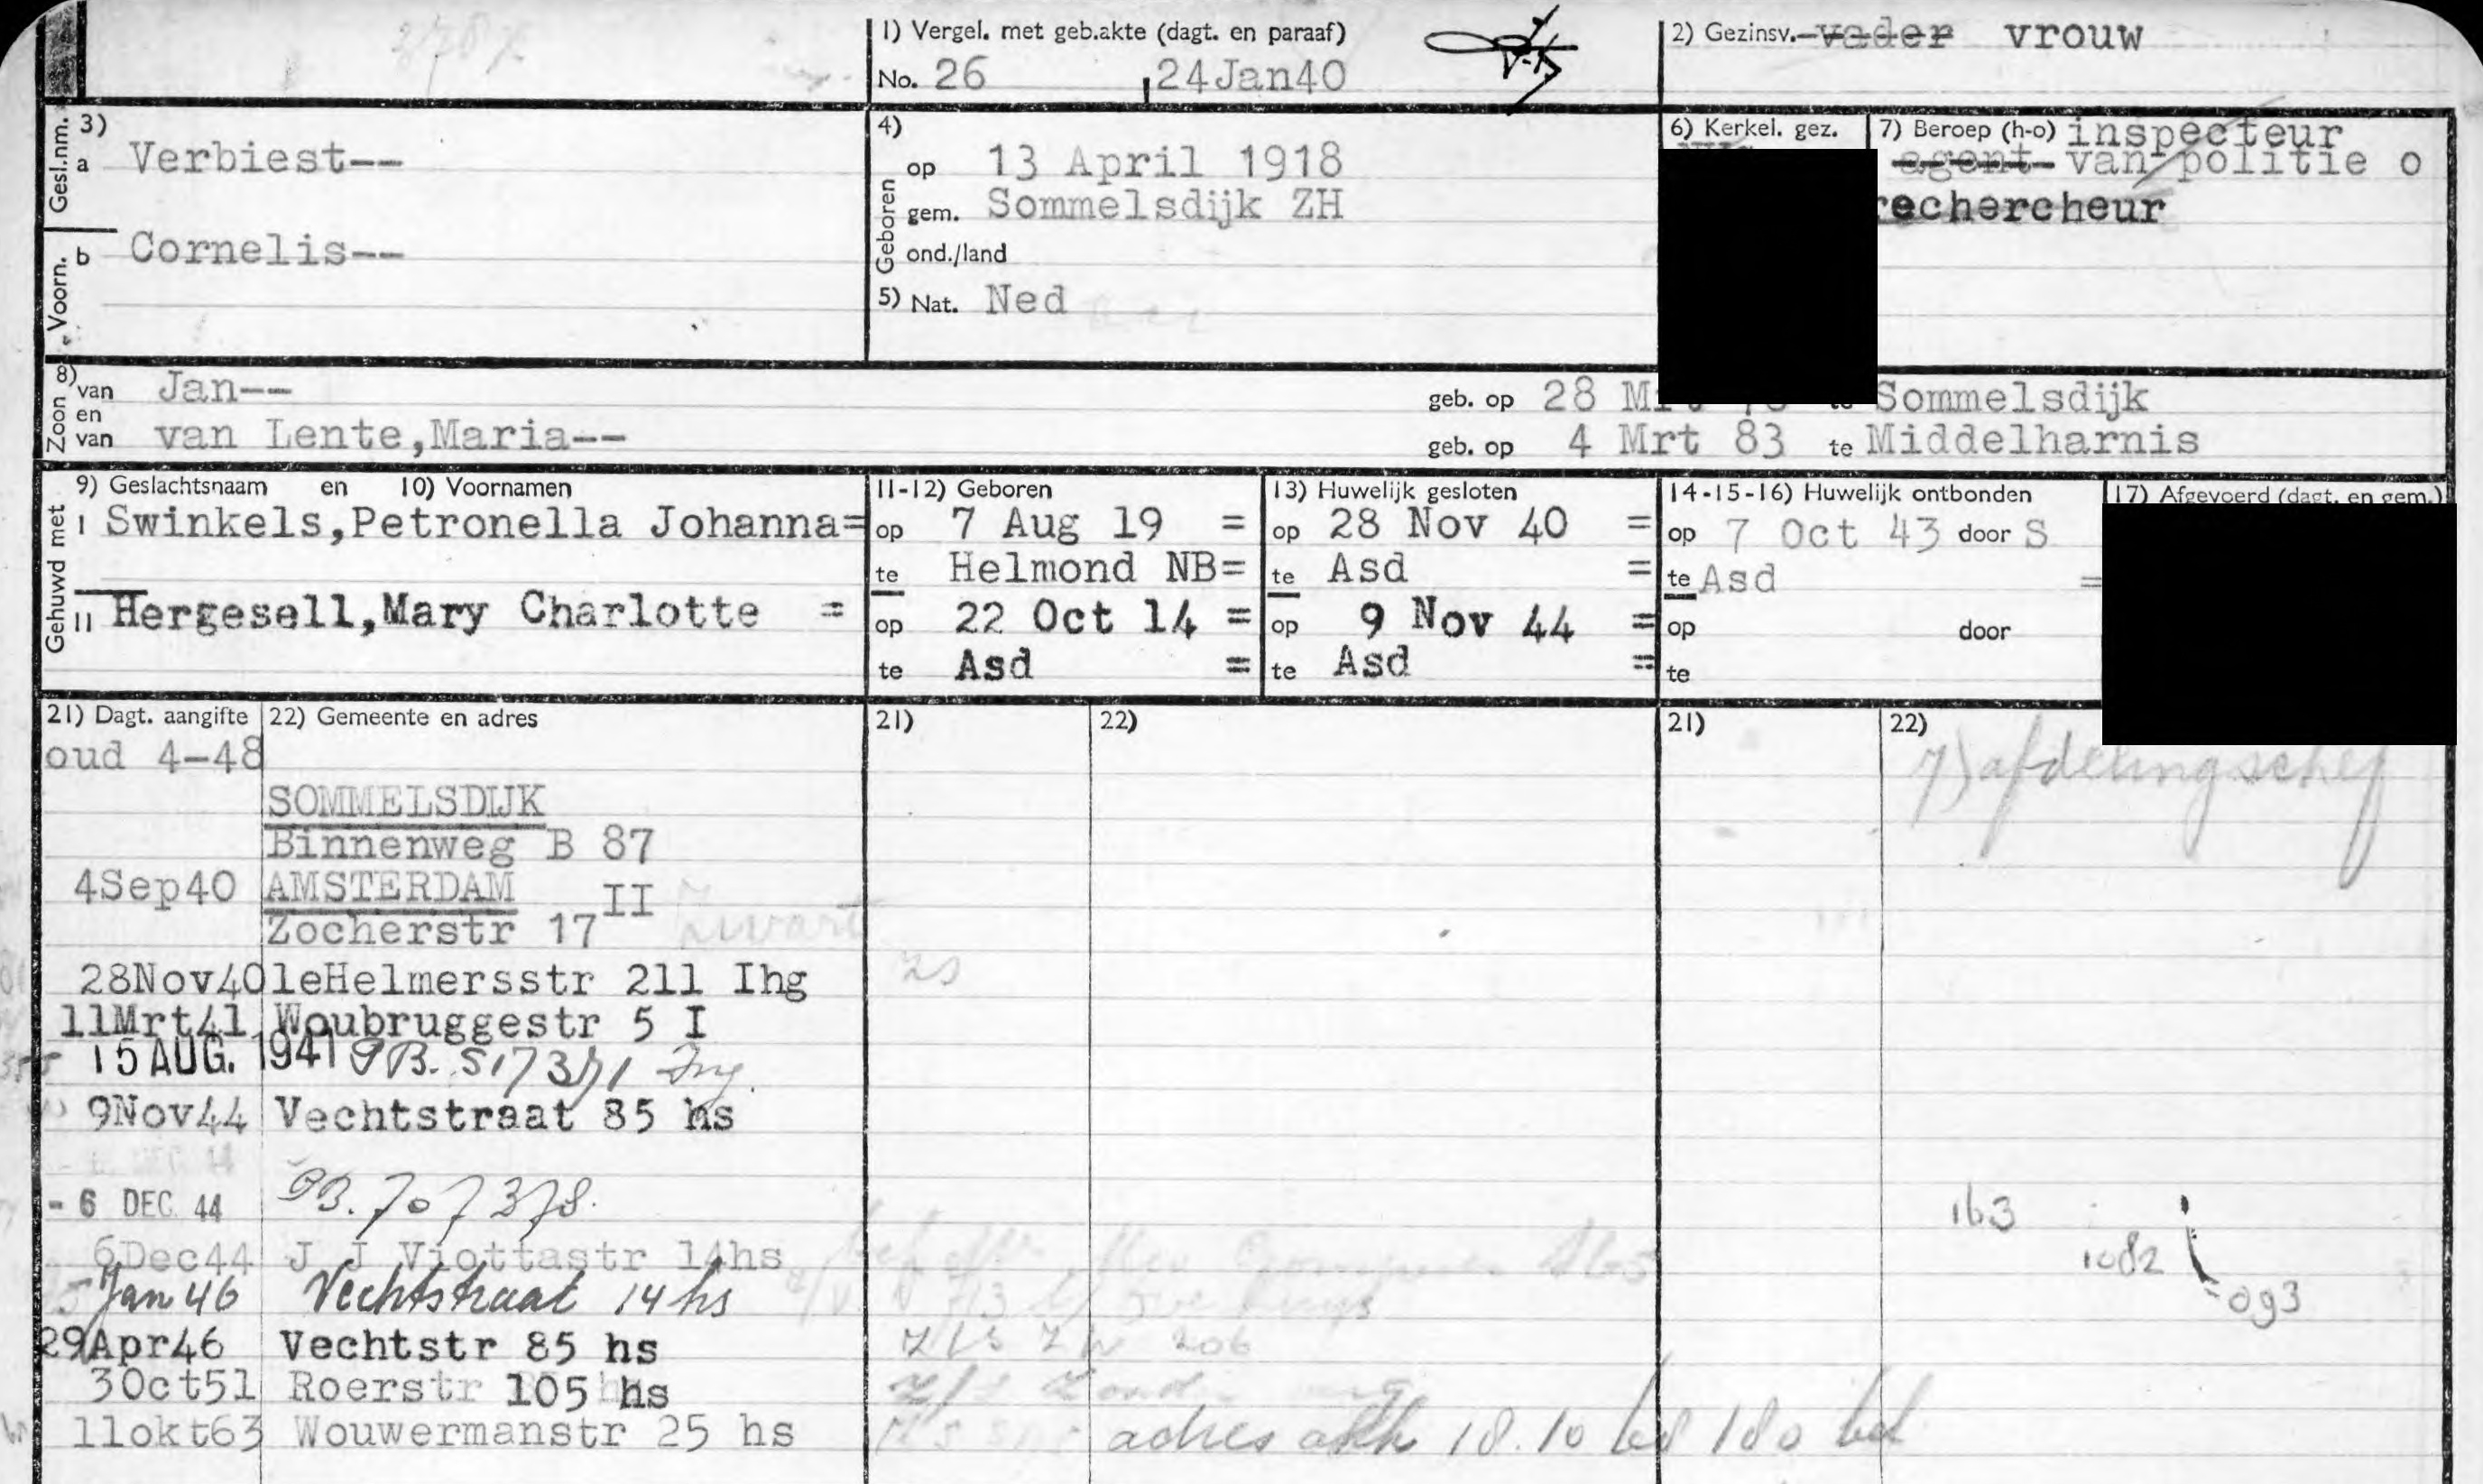 1) Vergel. met geb.akte (dagt. en paraaf)
No. 26 , 24Jan40
2) Gezinsv. vader vrouw
Gesl.nm. 3) a Verbiest--
Voorn. b Cornelis--
4) Geboren op 13 April 1918
gem. Sommelsdijk ZH
ond./land
5) Nat. Ned
6) Kerkel. gez.
7) Beroep (h-o) inspecteur
agent van politie o
rechercheur
8) Zoon van Jan-- geb. op 28 Mrt te Sommelsdijk
en van van Lente,Maria-- geb. op 4 Mrt 83 te Middelharnis
Gehuwd met
9) Geslachtsnaam en 10) Voornamen
I Swinkels,Petronella Johanna=
II Hergesell,Mary Charlotte =
11-12) Geboren
op 7 Aug 19 =
te Helmond NB=
op 22 Oct 14 =
te Asd =
13) Huwelijk gesloten
op 28 Nov 40 =
te Asd =
op 9 Nov 44 =
te Asd =
14-15-16) Huwelijk ontbonden
op 7 Oct 43 door S
te Asd =
op door
te
17) Afgevoerd (dagt. en gem.)
21) Dagt. aangifte 22) Gemeente en adres
oud 4-48
SOMMELSDIJK
Binnenweg B 87
4Sep40 AMSTERDAM
Zocherstr 17 II Zwart
28Nov40 1eHelmersstr 211 Ihg
11Mrt41 Woubruggestr 5 I
15 AUG. 1941 PB. 517371
9Nov44 Vechtstraat 85 hs
- 6 DEC. 44 PB. 707378.
6Dec44 J J Viottastr 14hs
Jan 46 Vechtstraat 14 hs
29Apr46 Vechtstr 85 hs
3Oct51 Roerstr 105 hs
11okt63 Wouwermanstr 25 hs
21) 22)
zs
206
adres 18.10
21) 22)
7) afdelingschef
163
1082
093